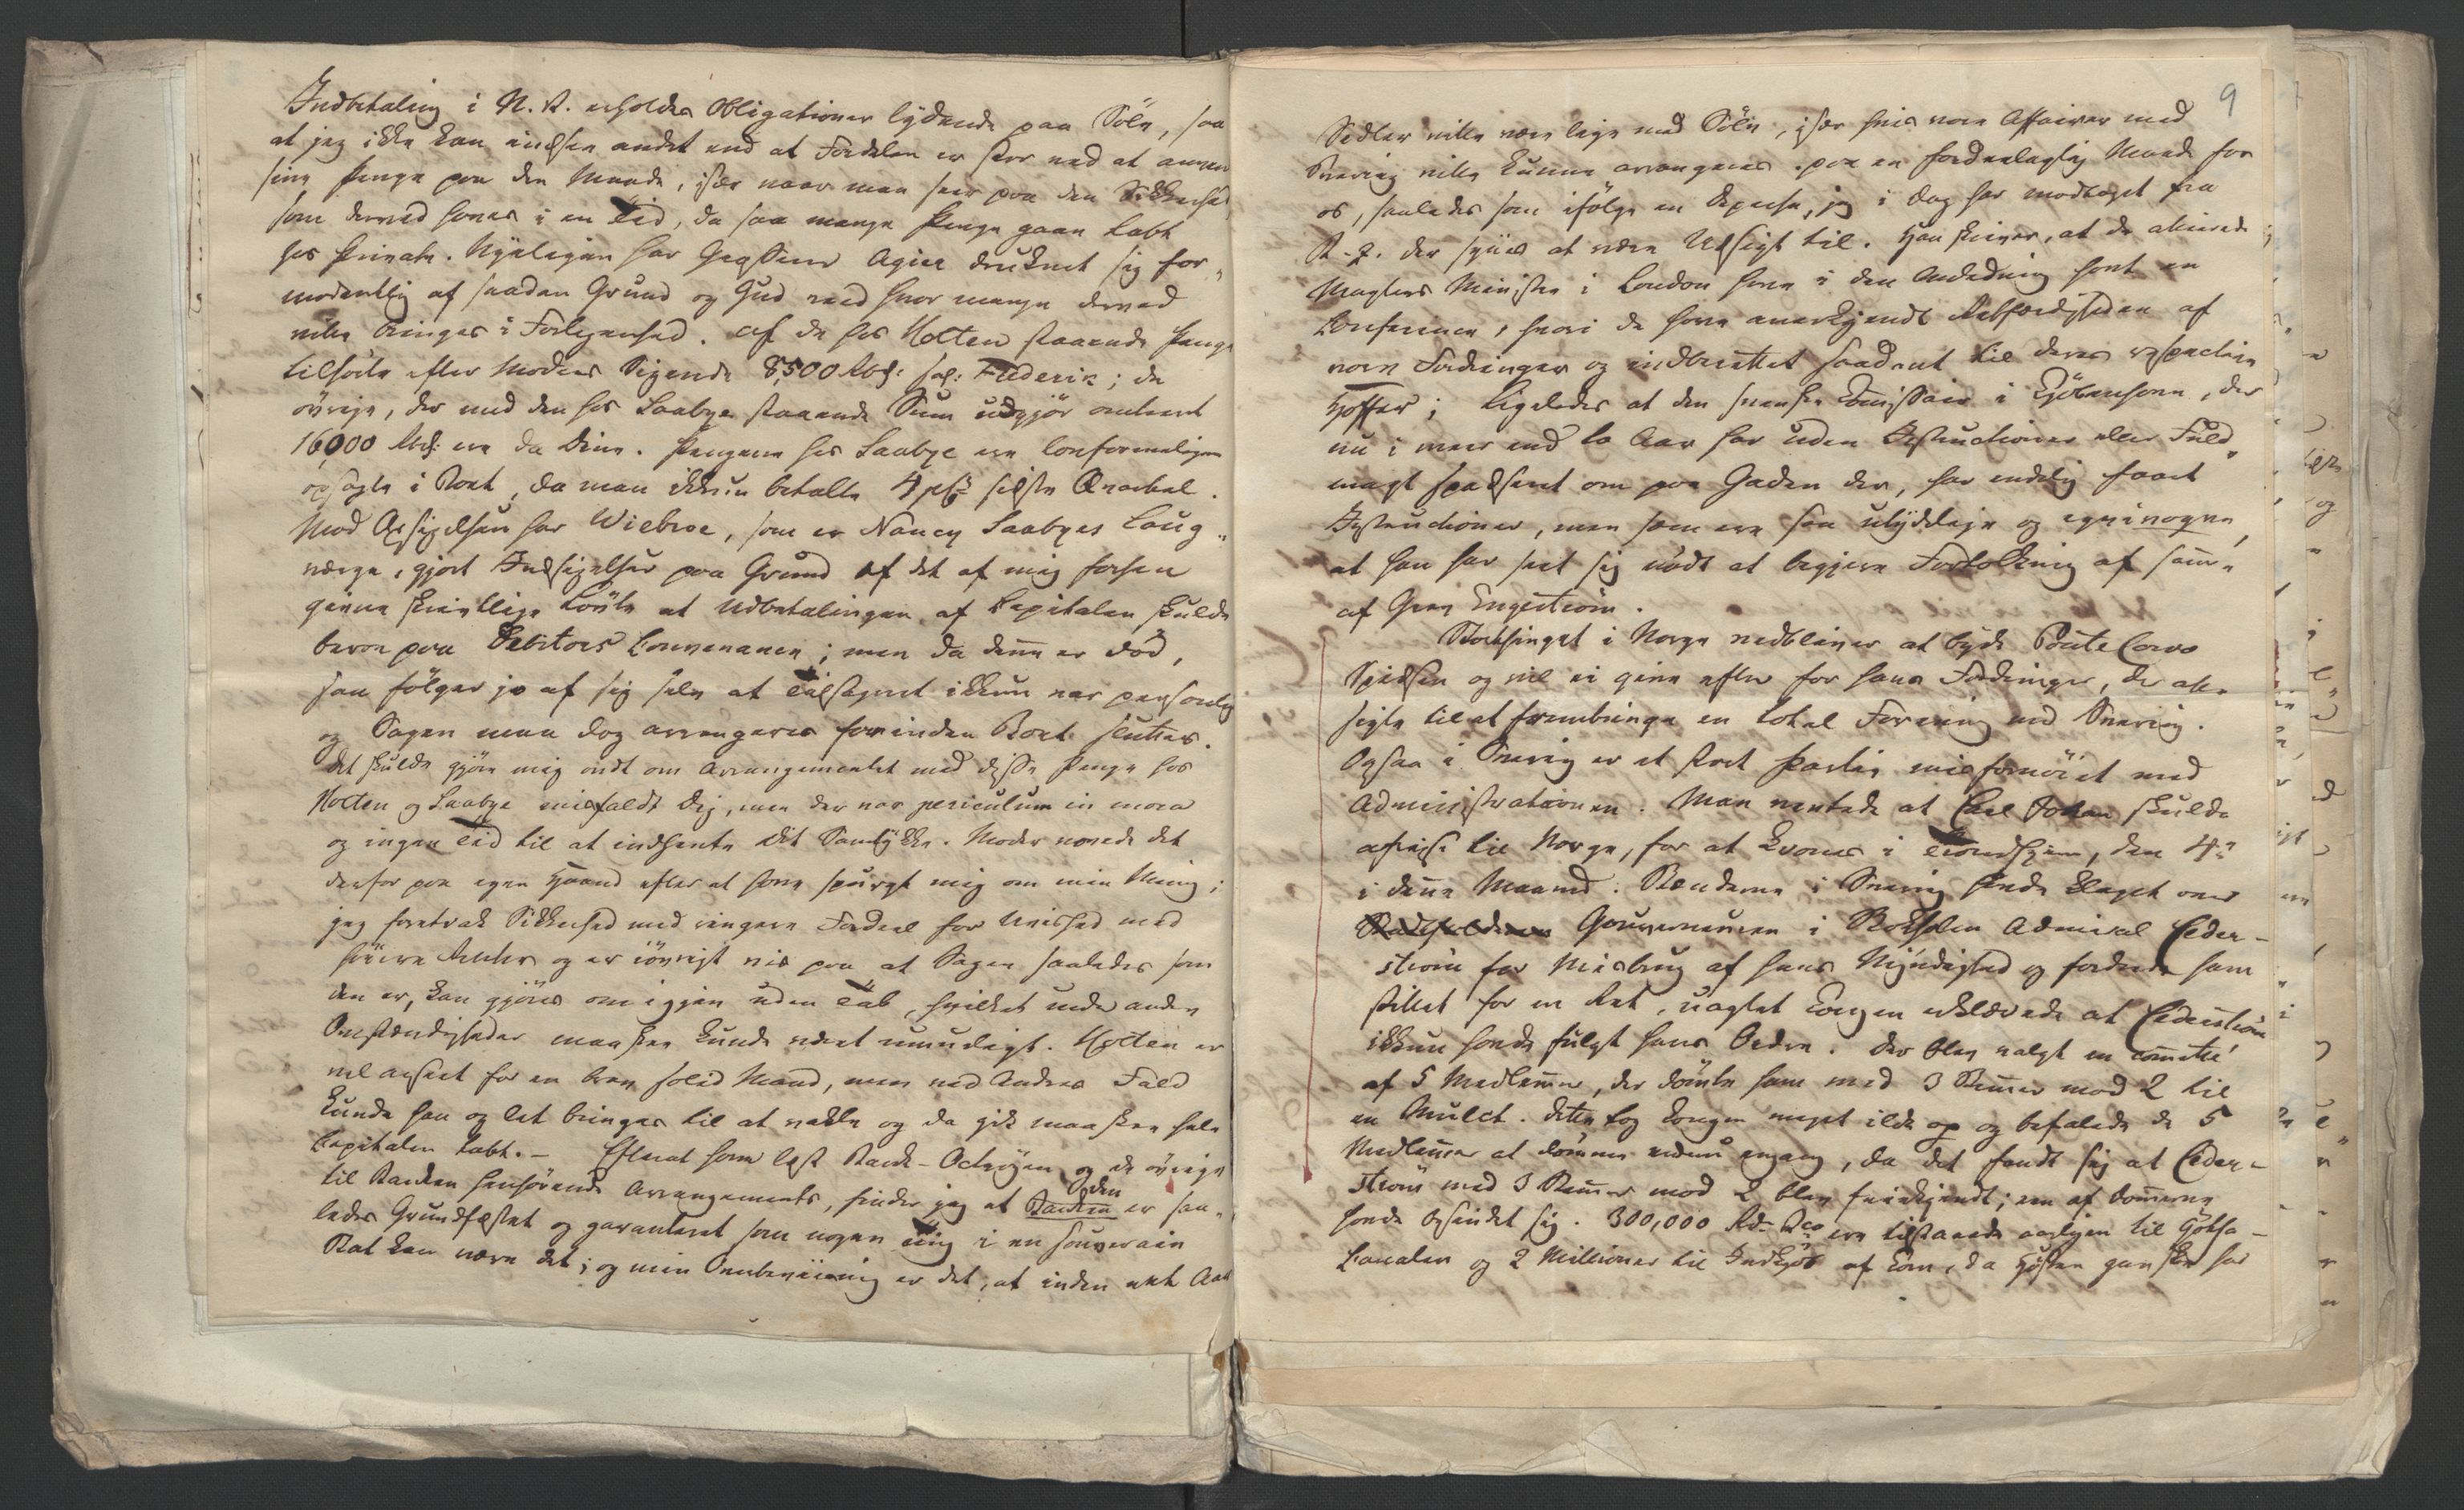 Indbetaling i N. V. erholdes Obligationer lydende paa Sölv, saa
at jeg ikke kan indsee andet end at Fordelen er stor ved at anven
sine Penge paa den Maade, især naar man seer paa den Sikkerhed
som derved haves i en Tid, da saa mange Penge gaae tabt
hos Private. Nyeligen har Grosserer Agier druknet sig for-
modentlig af saadan Grund og Gud veed hvor mange derved
ville bringes i Forlegenhed. Af de hos Holten staaende Penge
tilhörte efter Moders Sigende 8,500 Rbd: sal: Frederik; de
övrige, der med den hos Saabye staaende Sum udgjör omtrent
16,000 Rbd: ere da Dine. Pengene hos Saabye ere
opsagte i Bank, da man ikkun betalte 4 pCt sidste Qvartal.
Mod Opsigelsen har Wiebroe, som er Nancy Saabyes Laug-
værge, gjort Indsigelser paa Grund af det af mig forhen
givne skriftlige Löfte at Udbetalingen af Capitalen skulde
beroe paa Debitors Convenance; men da denne er död,
saa fölger jo af sig selv at Tilsagnet ikkun var personlig
og Sagen maa dog arrangeres forinden Aaret sluttes.
Det skulde gjöre mig ondt om Arrangementet med disse Penge hos
Holten og Saabye misfaldt Dig, men der var periculum in mora
og ingen Tid til at indhente Dit Samtykke. Moder vovede det
derfor paa egen Haand efter at have spurgt mig om min Mening;
jeg foretrak Sikkerhed med ringere Fordeel for Uvished med
höiere Renter og er iövrigt vis paa at Sagen saaledes som
den er, kan gjöres om igjen uden Tab, hvilket under andre
Omstændigheder maaskee kunde været umueligt. Holten er
vel anseet for en brav solid Mand, men ved Andres Fald
kunde han og let bringes til at vakle og da gik maaskee hele
Capitalen tabt. — Efterat have læst Bank-Octroyen og de övrige
til Banken henhörende Arrangements, finder jeg at Banken den er saa-
ledes Grundfæstet og garanteret som nogen Ting i en souverain
Stat kan være det; og min Overbeviisning er det, at inden otte Aar
9
Sedler ville være lige med Sölv, især hvis vore Affairer med
Sverrig ville kunne arrangeres paa en fordeelagtig Maade for
os, saaledes som ifölge en Depeche, jeg i Dag har modtaget fra
der synes at være Udsigt til. Han skriver, at de allierede
Magters Ministre i London have i den Anledning havt en
Conference, hvori de have anerkjendt Retfærdigheden af
vore Fordringer og indberettet saadant til deres respective
Hoffer; ligeledes at den svenske Comissair i Kjöbenhavn, der
nu i meer end to Aar har uden Instructioner eller Fuld-
magt spadseret om paa Gaden der, har endelig faaet
Instructioner, men som ere saa utydelige og eqvivoque,
at han har seet sig nödt at begjere Fortolkning af samme
af Grev Engeström.
Storthinget i Norge vedbliver at byde Ponte Corvo
Spidsen og vil ei give efter for hans Fordringer, der ab-
sigte til at frembringe en total Forening med Sverrig.
Ogsaa i Sverrig er et stort Partie misfornöiet med
Administrationen. Man ventede at Carl Johan skulde
afreise til Norge, for at krones i Trondhjem, den 4de
i denne Maaned. Stænderne i Sverrig havde klaget over
Statholderen Gouverneuren i Stokholm Admiral Ceder-
ström for Misbrug af hans Myndighed og fordrede ham
stillet for en Ret, uagtet Kongen erklærede at Cederström
ikkun havde fulgt hans Ordre. Der blev valgt en Comitté
af 5 Medlemmer, der dömte ham med 3 Stemmer mod 2 til
en Mulct. Dette tog Kongen meget ilde op og befalede de 5
Medlemmer at dömme endnu engang, da det fandt sig at Ceder-
ström med 3 Stemmer mod 2 blev frikjendt; een af Dommerne
havde besindet sig. 300,000 Rd Bco ere tilstaaede aarligen til Götha-
Canalen og 2 Millioner til Indkjöb af Korn, da Hösten ganske har